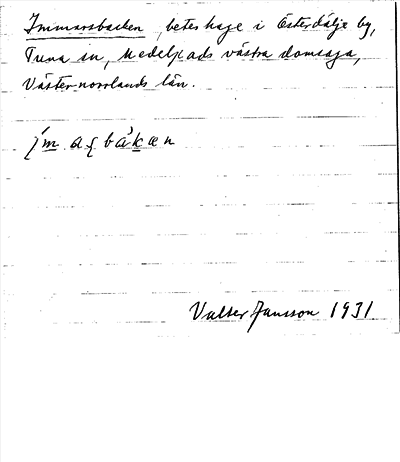 Immarsbacken, beteshage i Österdälje by,
Tuna sn, Medelpads västra domsaga,
Västernorrlands län.
Valter Jansson 1931